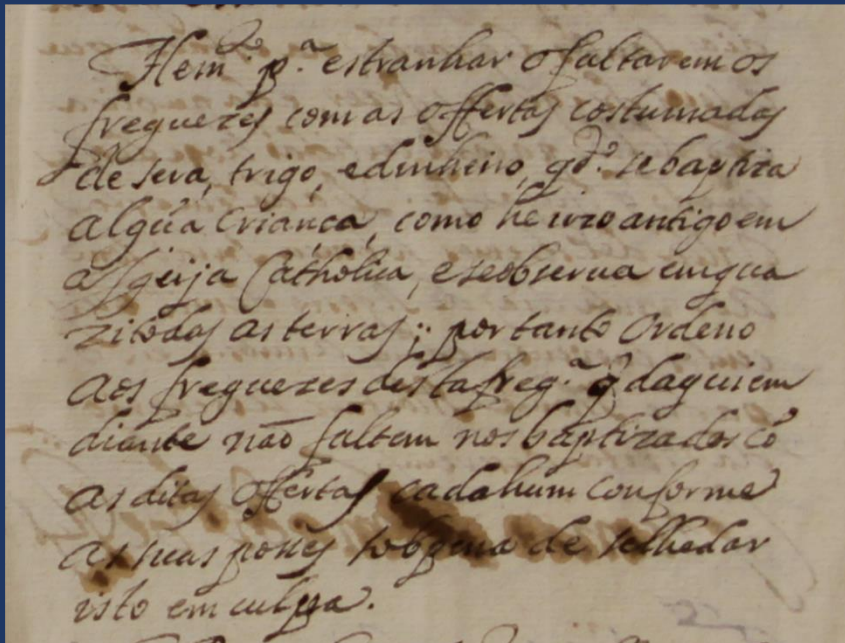 He m.to p.a estranhar o faltarem os
freguezes com as offertas costumadas
de sera, trigo, e dinheiro, q.do se baptiza
algũa criança, como he uzo antigo em
a Igreija Catholica, e se observa em qua
zi todas as terras; por tanto Ordeno
aos freguezes desta freg.a q̃ daqui em
diante não faltem nos baptizados cõ
as ditas offertas cada hum conforme
as suas posses sob pena de se lhe dar
isto em culpa.